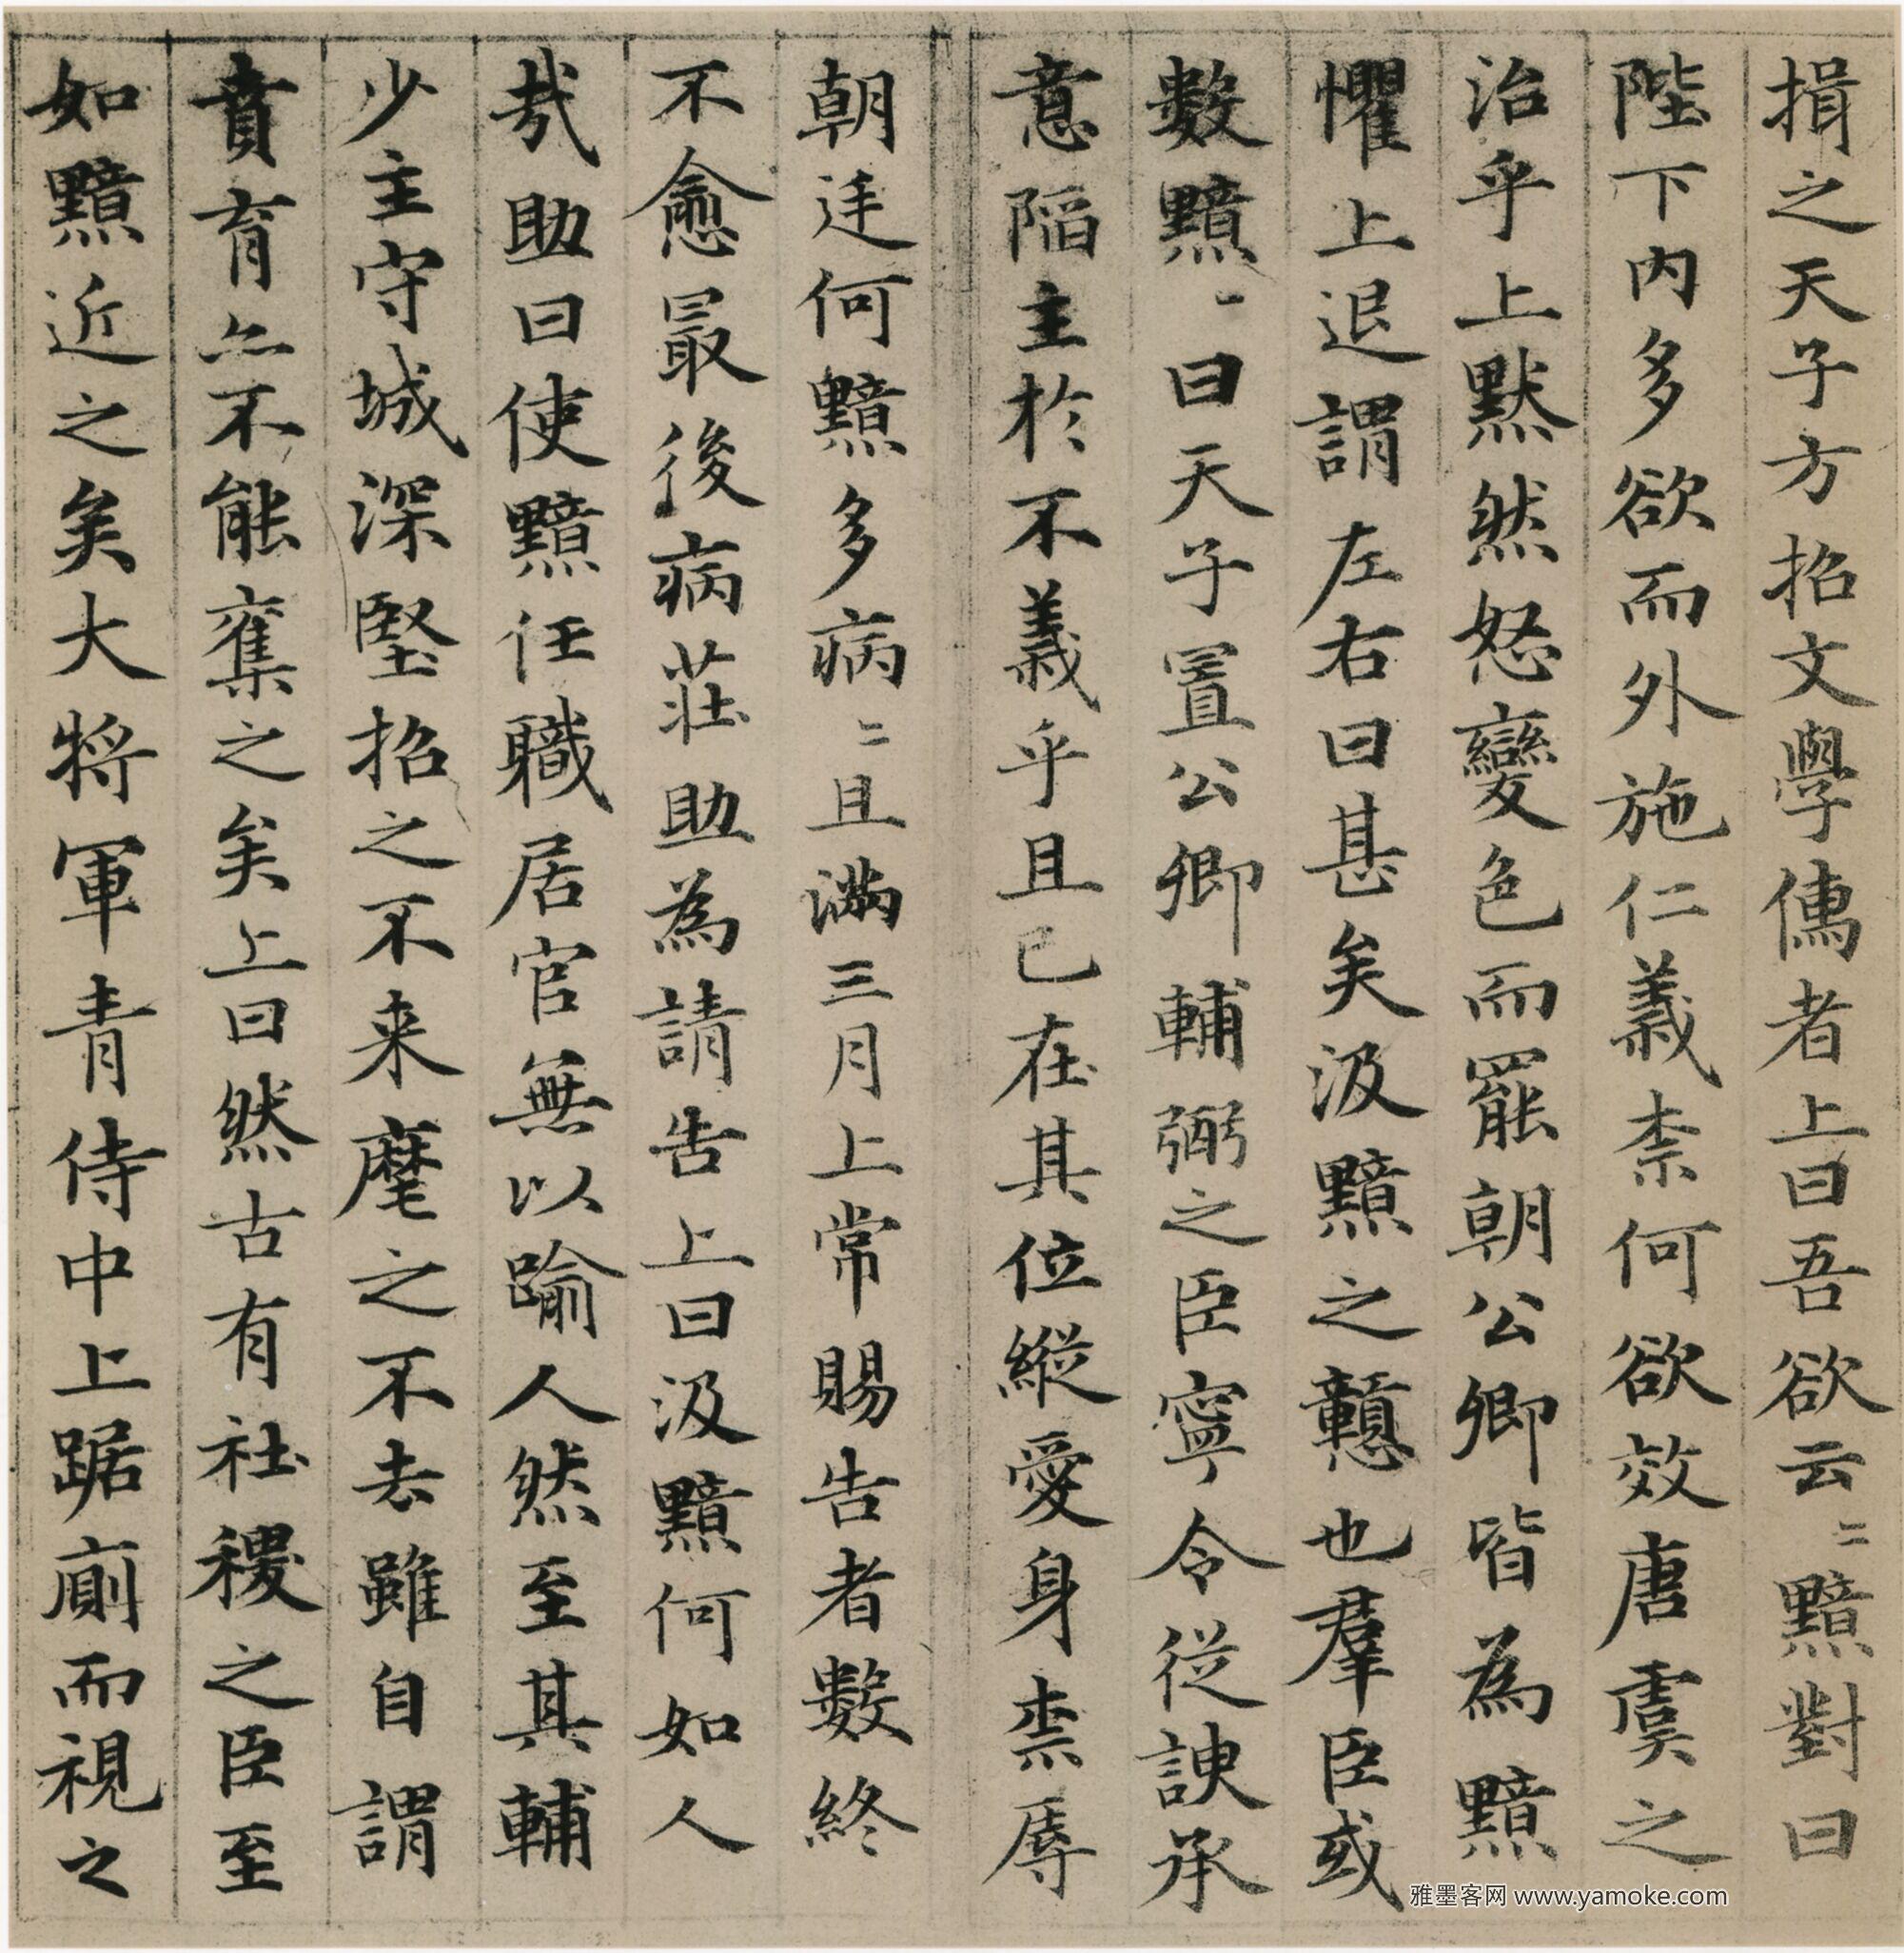 揖之天子方招文學儒者上曰吾欲云〻黯對曰
陛下内多欲而外施仁義柰何欲效唐虞之
治乎上默然怒變色而罷朝公卿皆為黯
懼上退謂左右曰甚矣汲黯之戇也羣臣或
數黯〻曰天子置公卿輔弼之臣寧令從諛承
意陷主於不義乎且已在其位縱愛身柰辱
朝廷何黯多病〻且滿三月上常賜告者數終
不愈最後病莊助為請告上曰汲黯何如人
哉助曰使黯任職居官無以踰人然至其輔
少主守城深堅招之不来麾之不去雖自謂
賁育亦不能奪之矣上曰然古有社稷之臣至
如黯近之矣大將軍青侍中上踞廁而視之
雅墨客网 www.yamoke.com